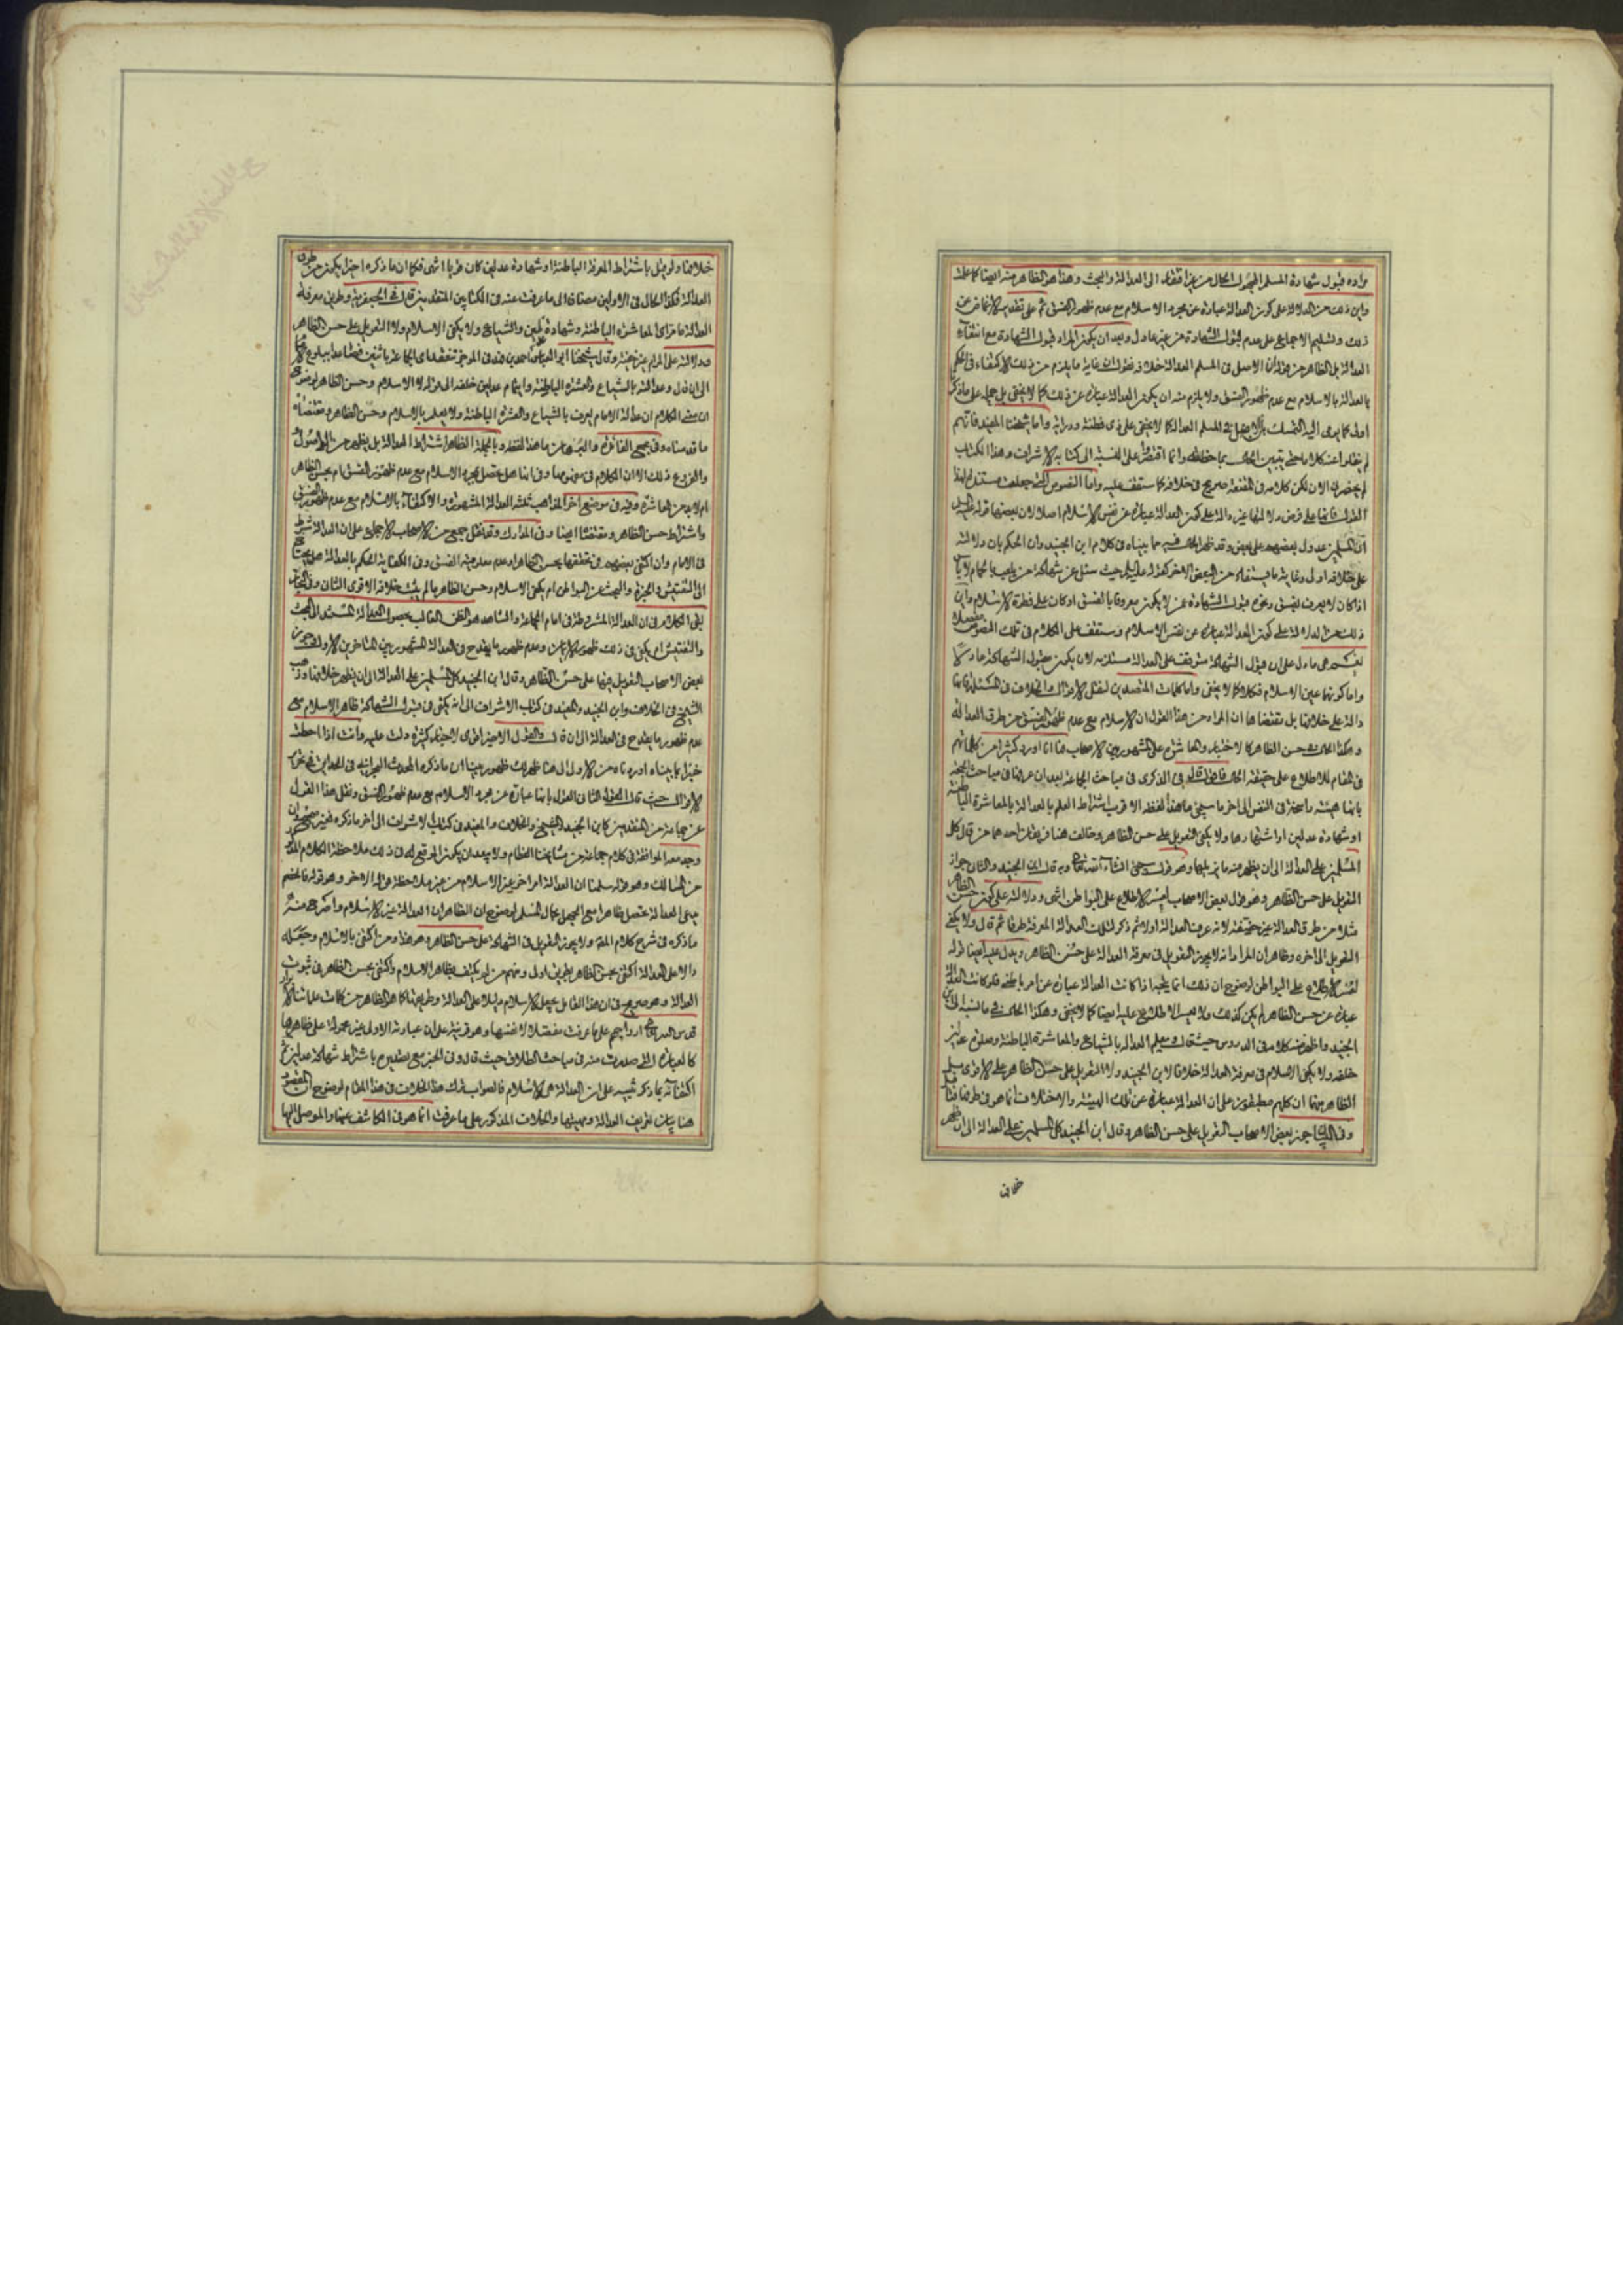 مراده قبول شهادة المسلم المجهول الحال من غير افتقار الى العدالة والبحث وهذا هو الظاهر منه ايضا كما علمت
واين ذلك من الدلالة على كون العدالة عبارة عن مجرد الاسلام مع عدم ظهور الفسق ثم على تقدير الاغماض عن
ذلك وتسليم الاجماع على عدم قبول الشهادة من غير عادل وبعد ان يكون المراد قبول الشهادة مع انتفاء
العدالة بل الظاهر من قوله ان الاصل في المسلم العدالة خلافه نقول ان غاية ما يلزم من ذلك الاكتفاء في الحكم
بالعدالة بالاسلام مع عدم ظهور الفسق ولا يلزم منه ان يكون العدالة عبارة عن ذلك كما لا يخفى بل حمله على ما ذكرنا
اولى كما يومى اليه التمسك بان الاصل في المسلم العدالة كما لا يخفى على ذى فطنة ودراية واما شيخنا المفيد فانهم
لم ينقلوا عنه كلاما حتى يتبين الحال بملاحظته وانما اقتصروا على النسبة الى كتابه الاشراف وهذا الكتاب
لم يحضرنى الان لكن كلامه في المقنعة صريح في خلافه كما ستقف عليه واما النصوص التي جعلت مستندا لهذا
القول فانها على فرض دلالتها غير دالة على كون العدالة عبارة عن نفس الاسلام اصلا لان بعضها قوله عليه السلام
ان المسلمين عدول بعضهم على بعض وقد ظهر الحال فيه مما بيناه في كلام ابن الجنيد وان الحكم بان دلالته
على خلافه اولى وغاية ما يستفاد من البعض الاخر كقوله عليه السلم حيث سئل عن شهادة من يلعب بالحمام لا باس
اذا كان لا يعرف بفسق ونحوه قبول الشهادة عمن لا يكون معروفا بالفسق او كان على فطرة الاسلام واين
ذلك من الدلالة على كون العدالة عبارة عن نفس الاسلام وستقف على الكلام في تلك النصوص مفصلا
نعم هى ما دل على ان قبول الشهادة متوقف على العدالة مستلزمة لان يكون مقبول الشهادة عادلا
واما كونها عين الاسلام فكلا كما لا يخفى واما كلمات المتصدين لنقل الاقوال والخلاف في المسئلة فانها
دالة على خلافها بل مقتضاها ان المراد من هذا القول ان الاسلام مع عدم ظهور الفسق من طرق العدالة
وهكذا الحال في حسن الظاهر كالاختبار والمعاشرة على المشهور بين الاصحاب فها انا اورد كثيرا من كلماتهم
في المقام للاطلاع على حقيقة الحال فاقول قال في الذكرى في مباحث الجماعة بعد ان عرفها في مباحث الجمعة
بانها هيئة راسخة في النفس الى اخر ما سيجئ ما هذا لفظه الاقرب اشتراط العلم بالعدالة بالمعاشرة الباطنة
او شهادة عدلين او اشتهارها ولا يكفى التعويل على حسن الظاهر وخالف هنا فريقان احدهما من قال كل
المسلمين على العدالة الى ان يظهر منه ما يزيلها وهو قول ابن الجنيد والثانى جواز
التعويل على حسن الظاهر وهو قول بعض الاصحاب لعسر الاطلاع على البواطن انتهى ودلالته على كون حسن الظاهر
مثلا من طرق العدالة غير خفية لانه عرف العدالة اولا ثم ذكر لتلك العدالة المعرفة طرقا ثم قال ولا يكفى
التعويل الى اخره وظاهر ان المراد انه لا يجوز التعويل في معرفة العدالة على حسن الظاهر ويدل عليه ايضا قوله
لعسر الاطلاع على البواطن لوضوح ان ذلك انما يتجه اذا كانت العدالة عبارة عن امر باطنى فلو كانت العدالة
عبارة عن حسن الظاهر لم يكن كذلك ولا يعسر الاطلاع عليه ايضا كما لا يخفى وهكذا الحال في ما نسبه الى ابن
الجنيد واظهر منه كلامه في الدروس حيث قال ويعلم العدالة بالشياع والمعاشرة الباطنة وصلوة عدلين
خلفه ولا يكفى الاسلام في معرفة العدالة خلافا لابن الجنيد ولا التعويل على حسن الظاهر على الاقوى
الظاهر منها ان كلهم مطبقون على ان العدالة عبارة عن تلك الهيئة والاختلاف انما هو في طرقها
وفي جوز بعض الاصحاب التعويل على حسن الظاهر وقال ابن الجنيد كل المسلمين على العدالة الى ان يظهر
خلافها
خلافها ولو قيل باشتراط المعرفة الباطنة او شهادة عدلين كان قريبا انتهى فكما ان ما ذكره اخيرا يكون من طرق
العدالة فكذا الحال في الاولين مضافا الى ما عرفت عنه في الكتابين المتقدمين قال في الجعفرية وطريق معرفة
العدالة المعاشرة الباطنة وشهادة عدلين والشياع ولا يكفى الاسلام ولا التعويل على حسن الظاهر
ودلالته على المرام غير خفية وقال شيخنا ابو العباس احمد بن فهد في الموجز تنعقد اى الجماعة باثنين فصاعدا ببلوغ الامام
الى ان قال وعدالته بالشياع والعشرة الباطنة وايتمام عدلين خلفه الى قوله لا الاسلام وحسن الظاهر لوضوح
ان معنى الكلام ان عدالة الامام يعرف بالشياع والعشرة الباطنة ولا يعلم بالاسلام وحسن الظاهر ومقتضاه
ما قدمناه وفى مجمع الفائدة والبرهان ما هذا لفظه وبالجملة الظاهر اشتراط العدالة بل يظهر من الاصول
والفروع ذلك الا ان الكلام في مفهومها وفى انها هل تحصل بمجرد الاسلام مع عدم ظهور الفسق ام بحسن الظاهر
ام لا بد من المعاشرة وفيه في موضع اخر المذاهب ثلثة العدالة المشهورة والاكتفاء بالاسلام مع عدم ظهور الفسق
واشتراط حسن الظاهر ومقتضاها ايضا وفى المدارك وقد نقل جمع من الاصحاب الاجماع على ان العدالة شرط
في الامام وان اكتفى بعضهم في تحققها بحسن الظاهر او عدم معلومية الفسق وفى الكفاية الحكم بالعدالة هل يحتاج
الى التفتيش والخبرة والبحث عن البواطن ام يكفى الاسلام وحسن الظاهر ما لم يثبت خلافه الاقوى الثانى وفى البحار
بقى الكلام في ان العدالة المشروطة في امام الجماعة والشاهد هو الظن الغالب بحصول العدالة المستند الى البحث
والتفتيش ام يكفى في ذلك ظهور الايمان وعدم ظهور ما يقدح في العدالة المشهور بين المتاخرين الاول وجوز
بعض الاصحاب التعويل فيها على حسن الظاهر وقال ابن الجنيد كل المسلمين على العدالة الى ان يظهر خلافها وذهب
الشيخ في الخلاف وابن الجنيد والمفيد في كتاب الاشراف الى انه يكفى في قبول الشهادة ظاهر الاسلام مع
عدم ظهور ما يقدح في العدالة الى ان قال والقول الاخير اقوى لاخبار كثيرة دلت عليه وانت اذا احطت
خبرا بما بيناه اوردناه من الاول الى هنا ظهر لك ظهورا بينا ان ما ذكره المحدث البحرانى في الحدائق في تحرير
الاقوال حيث قال القول الثانى القول بانها عبارة عن مجرد الاسلام مع عدم ظهور الفسق ونقل هذا القول
عن جماعة من المتقدمين كابن الجنيد والشيخ في الخلاف والمفيد في كتاب الاشراف الى اخر ما ذكره غير صحيح وان
وجد معه الموافقة في كلام جماعة من مشايخنا العظام ولا يبعد ان يكون الموقع له في ذلك ملاحظة الكلام المذكور
من المسالك وهو قوله سلمنا ان العدالة امر اخر غير الاسلام من غير ملاحظة قوله الاخر وهو قوله فالخصم
يدعى العدالة تحصل ظاهرا مع الجهل بحال المسلم لوضوح ان الظاهر ان العدالة غير الاسلام واصرح منه
ما ذكره في شرح كلام المص ولا يجوز التعويل في الشهادة على حسن الظاهر وهو هذا ومن اكتفى بالاسلام وجعله
دالا على العدالة اكتفى بحسن الظاهر بطريق اولى ومنهم من لم يكتف بظاهر الاسلام واكتفى بحسن الظاهر في ثبوت
العدالة وهو صريح في ان هذا القايل يجعل الاسلام دليلا على العدالة وطريقا كما هو الظاهر من كلمات علمائنا الابرار
قدس الله ارواحهم على ما عرفت مفصلا لا نفسها وهو قرينة على ان عبارته الاولى غير محمولة على ظاهرها
كالعبارة التي صدرت منه في مباحث الطلاق حيث قال وفى الخبر مع تصديره باشتراط شهادة عدلين ثم
اكتفائه بما ذكر تنبيه على ان العدالة هى الاسلام فالصواب ترك هذا الخلاف في هذا المقام لوضوح ان المقصود
هنا بيان تعريف العدالة ومهيتها والخلاف المذكور على ما عرفت انما هو في الكاشف عنها والموصل اليها